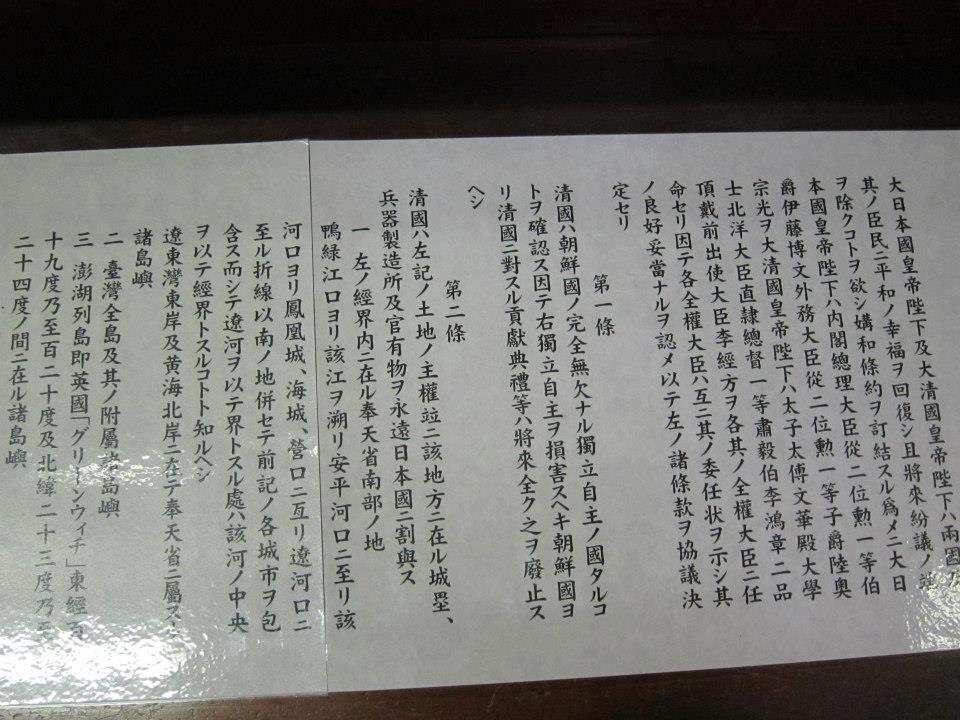 大日本國皇帝陛下及大清國皇帝陛下ハ兩國及
其ノ臣民ニ平和ノ幸福ヲ回復シ且將來紛議ノ
ヲ除クコトヲ欲シ媾和條約ヲ訂結スル爲メニ大日
本國皇帝陛下ハ内閣總理大臣從二位勲一等伯
爵伊藤博文外務大臣從二位勲一等子爵陸奥
宗光ヲ大清國皇帝陛下ハ太子太傅文華殿大學
士北洋大臣直隷總督一等肅毅伯李鴻章二品
頂戴前出使大臣李經方ヲ各其ノ全權大臣ニ任
命セリ因テ各全權大臣ハ互ニ其ノ委任状ヲ示シ其
ノ良好妥當ナルヲ認メ以テ左ノ諸條款ヲ協議決
定セリ
第一條
清國ハ朝鮮國ノ完全無欠ナル獨立自主ノ國タルコ
トヲ確認ス因テ右獨立自主ヲ損害スヘキ朝鮮國ヨ
リ清國ニ對スル貢獻典禮等ハ將來全ク之ヲ廢止ス
ヘシ
第二條
清國ハ左記ノ土地ノ主權竝ニ該地方ニ在ル城壘、
兵器製造所及官有物ヲ永遠日本國ニ割與ス
一 左ノ經界内ニ在ル奉天省南部ノ地
鴨緑江口ヨリ該江ヲ溯リ安平河口ニ至リ該
河口ヨリ鳳凰城、海城、營口ニ亙リ遼河口ニ
至ル折線以南ノ地併セテ前記ノ各城市ヲ包
含ス而シテ遼河ヲ以テ界トスル處ハ該河ノ中央
ヲ以テ經界トスルコトト知ルヘシ
遼東灣東岸及黄海北岸ニ在テ奉天省ニ屬スル
諸島嶼
二 臺灣全島及其ノ附屬諸島嶼
三 澎湖列島即英國「グリーンウィチ」東經百
十九度乃至百二十度及北緯二十三度乃至
二十四度ノ間ニ在ル諸島嶼